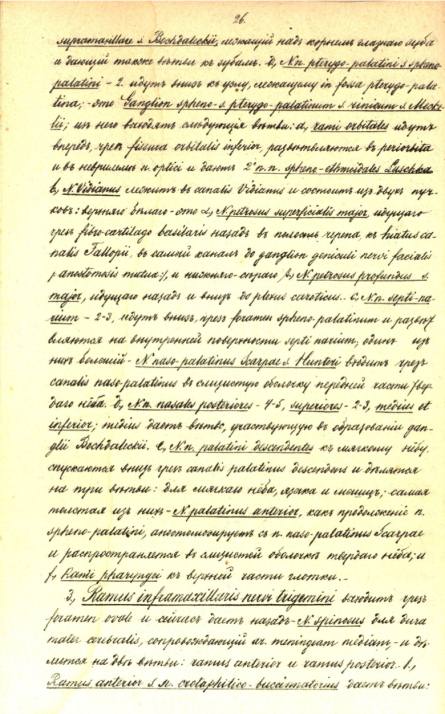 26.
supramaxillare s. Bochdaleckii, лежащій надъ корнемъ глазнаго зуба
и дающій также вѣтви къ зубамъ. d, Nn. pterygo-palatini s. spheno-
palatini - 2. идутъ внизъ къ узлу, лежащему in fossa pterygo-pala-
tina; - это Ganglion spheno-s. pterygo-palatinum s. rhinicum s. Mecke-
lii; изъ него выходятъ слѣдующія вѣтви: a, rami orbitales идутъ
впередъ, чрезъ fissura orbitalis inferior, развѣтвляются въ periorbita
и въ неврилемѣ n. optici и даютъ 2 n. n. spheno-ethmoidales Luschka
b, N. Vidianus лежитъ въ canalis Vidianus и состоитъ изъ двухъ пуч-
ковъ: верхняго бѣлаго - это α, N. petrosus superficialis major, идущаго
чрезъ fibro-cartilago basilaris назадъ въ полость черепа, къ hiatus ca-
nalis Fallopii, въ самый каналъ до ganglion geniculi nervi facialis
/: anostomosis :/, и нижняго - сѣраго β, N. petrosus profundus s.
major, идущаго назадъ и внизъ до plexus caroticus. c, N. n. septi-na-
rium - 2-3, идутъ внизъ, чрезъ foramen spheno-palatinum и развѣт
вляются на внутренней поверхности septi narium; одинъ изъ
нихъ большой - N. naso-palatinus Scarpae s. Hunteri входитъ чрезъ
canalis naso-palatinus въ слизистую оболочку передней части твер-
даго нёба. d, N. n. nasales posteriores - 4-5, superiores - 2-3, medius et
inferior; medius даетъ вѣтвь, участвующую въ образованіи gan-
glii Bochdaleckii. e, N. n. palatini descendentes къ мягкому нёбу
спускается внизъ чрезъ canalis palatinus descendens и дѣлятся
на три вѣтви: для мягкаго нёба, язика и мышцъ; - самая
толстая изъ нихъ - N. palatinus anterior, какъ продолженіе n.
spheno-palatini, анастомозируетъ съ n. naso-palatinus Scarpae
и распространяется въ слизистой оболочкѣ твердаго нёба; и
f, Rami pharyngei къ верхней части глотки. -
3, Ramus inframaxillaris nervi trigemini выходитъ чрезъ
foramen ovale и сейчасъ даетъ назадъ - N. spinosus для dura
mater cerebralis, сопровождающій ar. meningeam mediam - и дѣ-
лится на двѣ вѣтви: ramus anterior и ramus posterior. 1,
Ramus anterior s. n. crotaphitico-buccinatorius даетъ вѣтви: